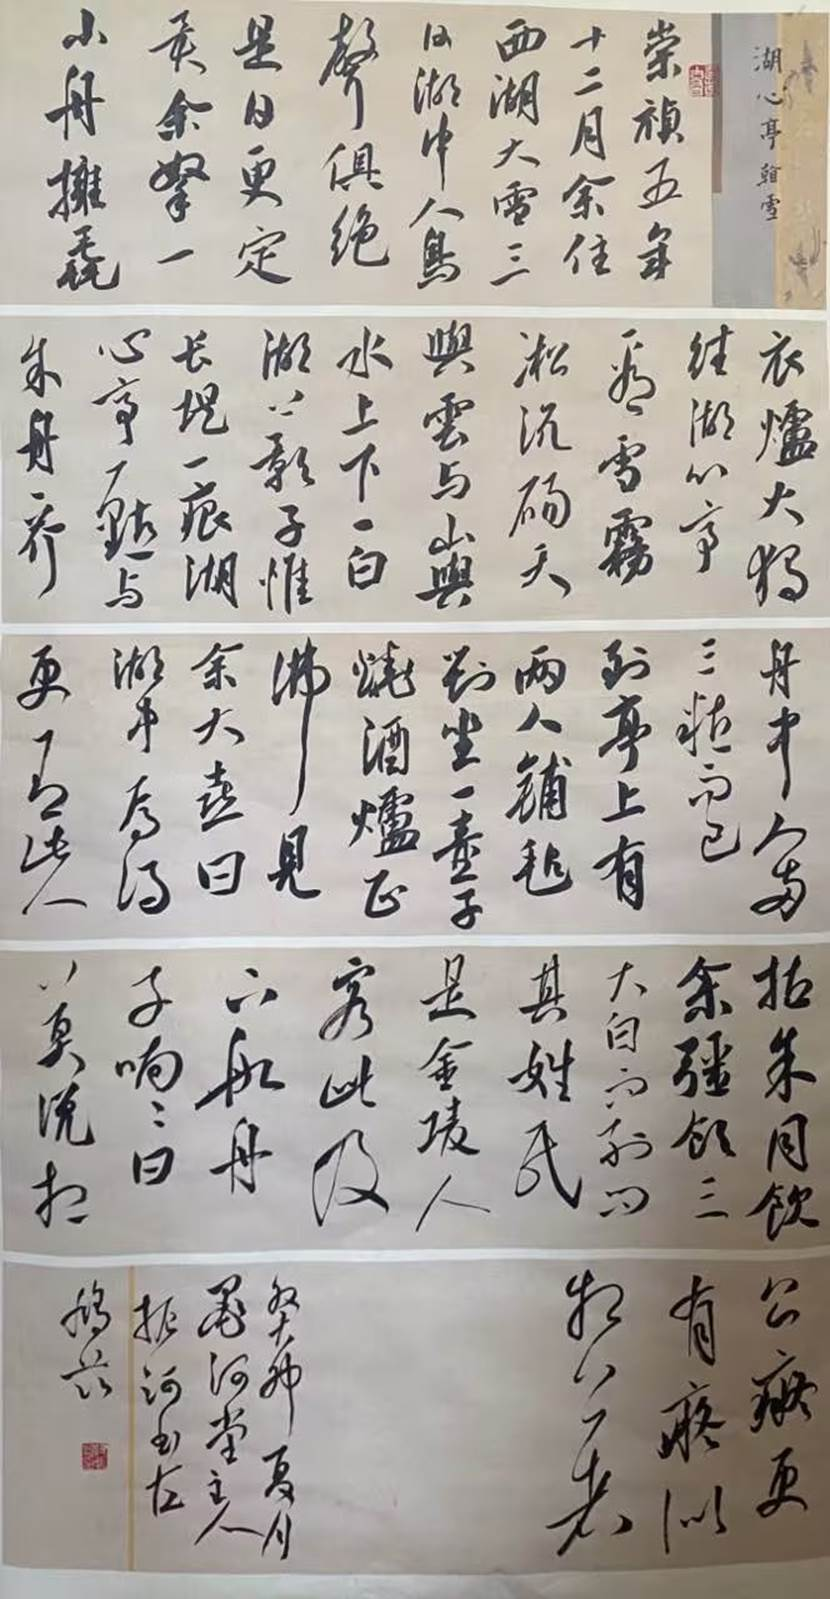 湖心亭看雪
崇禎五年
十二月余住
西湖大雪三
日湖中人鳥
聲俱絕
是日更定
矣余拏一
小舟擁毳
衣爐火獨
往湖心亭
看雪霧
凇沆碭天
與雲与山與
水上下一白
湖上影子惟
長堤一痕湖
心亭一點与
余舟一芥
舟中人兩
三粒而已
到亭上有
兩人鋪毡
對坐一童子
燒酒爐正
沸見
余大喜曰
湖中焉得
更有此人
拉余同飲
余強飲三
大白而別問
其姓氏
是金陵人
客此及
下船舟
子喃〻曰
莫說相
公癡更
有癡似
相公者
癸卯夏月
墨河堂主人
振河書於
鳩茲